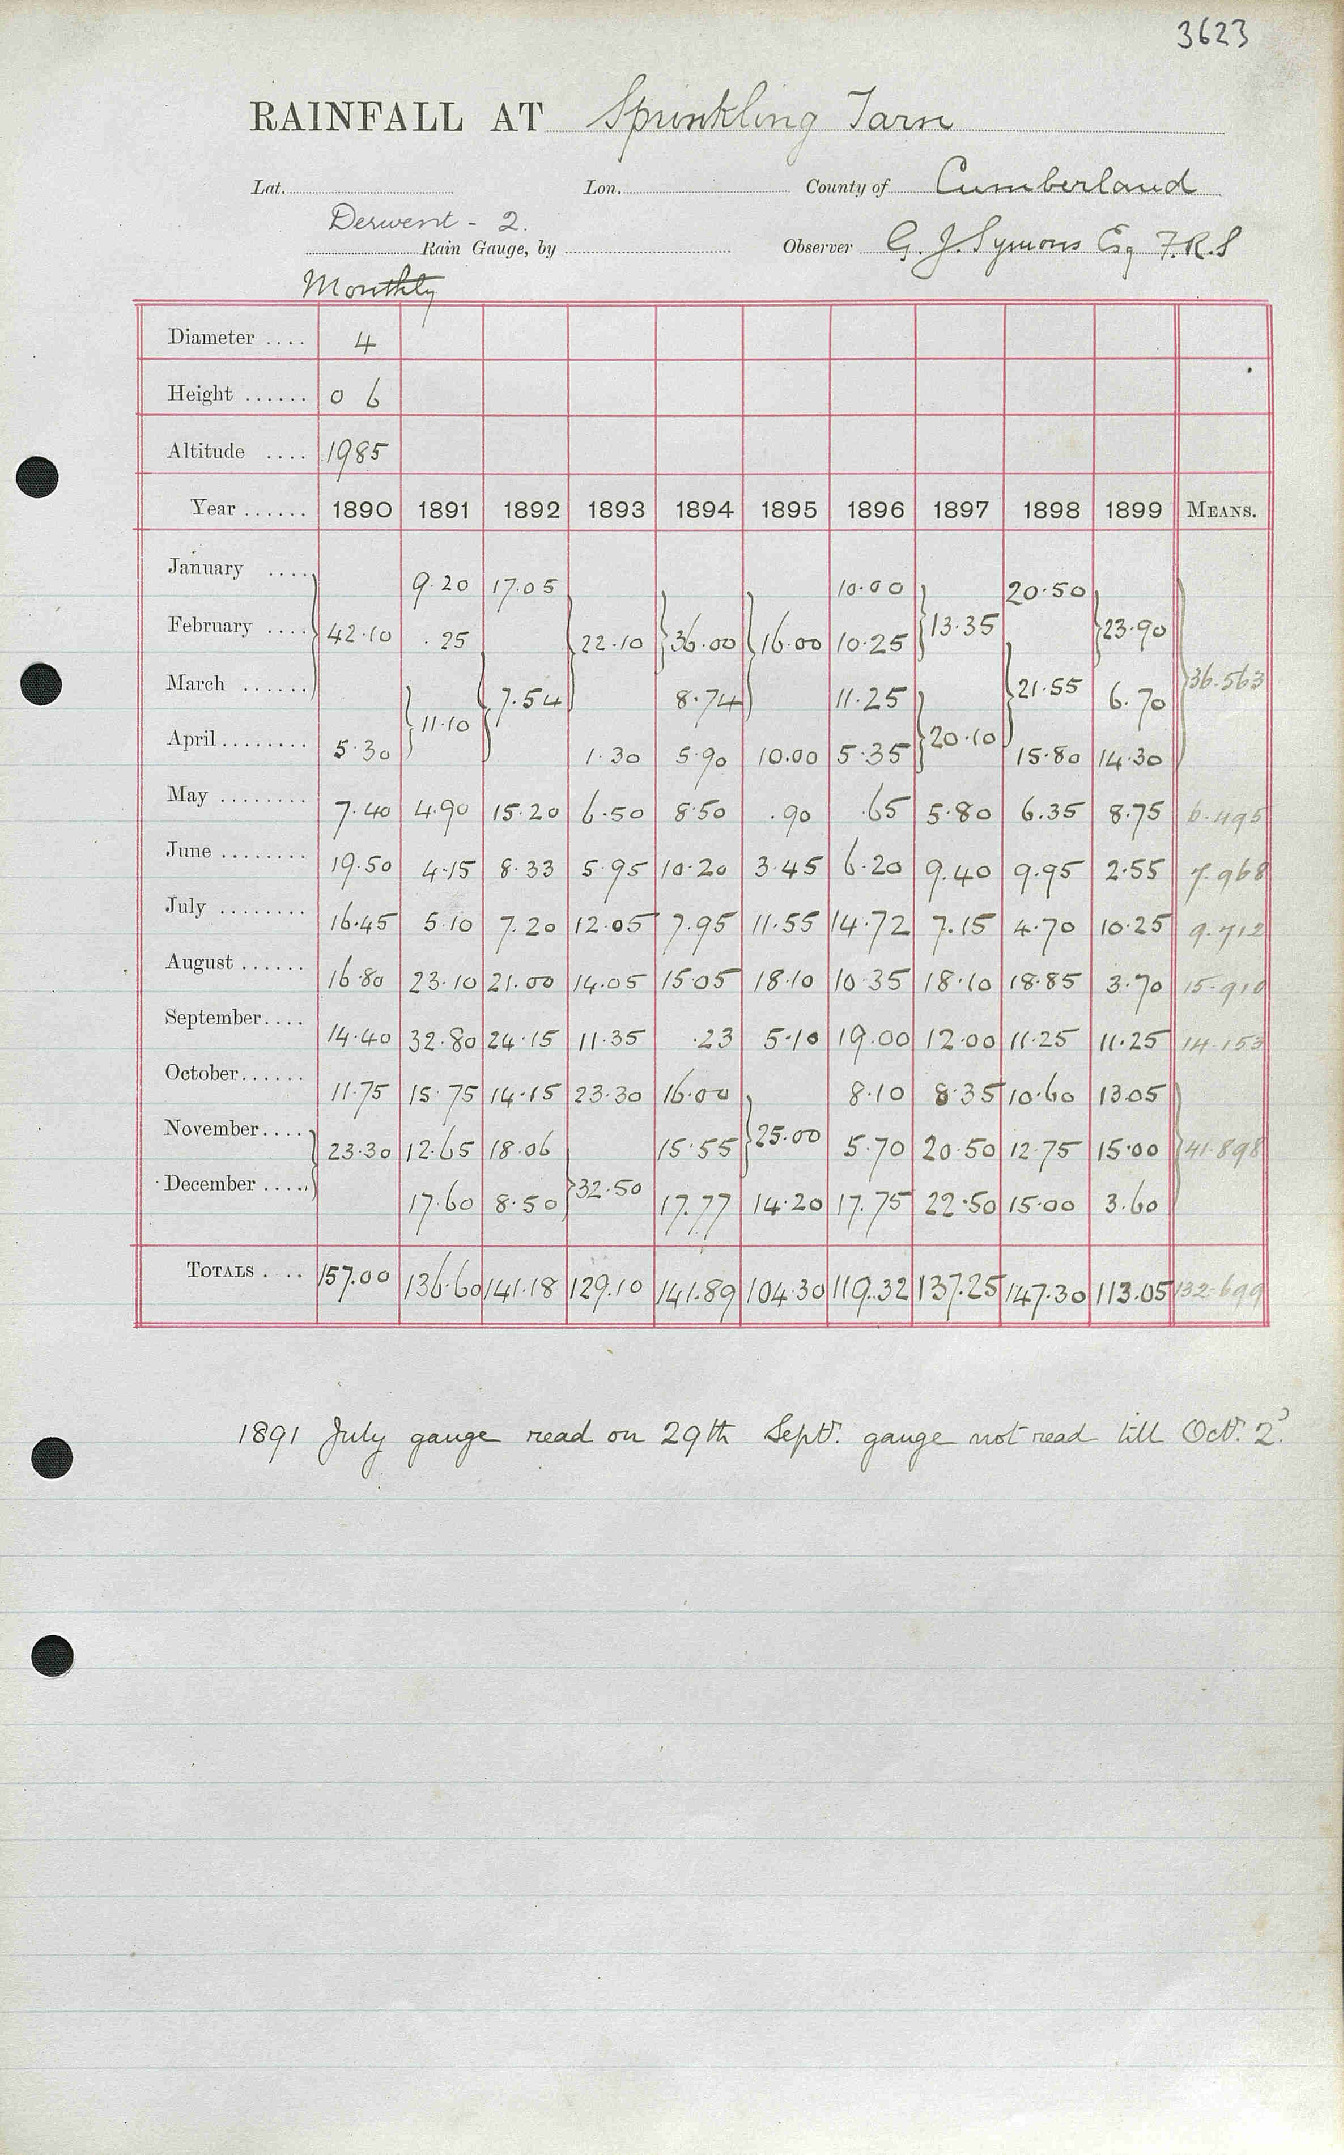 3623
RAINFALL AT Sprinkling Tarn
Lat. Lon. County of Cumberland
Derwent - 2.
Rain Gauge, by Observer G. J. Symons Esq F.R.S
Monthly
Diameter .... 4
Height ...... 0 6
Altitude .... 1985
Year ...... 1890 1891 1892 1893 1894 1895 1896 1897 1898 1899 MEANS.
January .... 9.20 17.05 10.00 20.50
February .... 42.10 .25 22.10 36.00 16.00 10.25 13.35 23.90
March ...... 11.10 7.54 8.74 11.25 21.55 6.70 36.563
April ........ 5.30 1.30 5.90 10.00 5.35 20.10 15.80 14.30
May ........ 7.40 4.90 15.20 6.50 8.50 .90 .65 5.80 6.35 8.75 6.495
June ........ 19.50 4.15 8.33 5.95 10.20 3.45 6.20 9.40 9.95 2.55 7.968
July ........ 16.45 5.10 7.20 12.05 7.95 11.55 14.72 7.15 4.70 10.25 9.712
August ...... 16.80 23.10 21.00 14.05 15.05 18.10 10.35 18.10 18.85 3.70 15.910
September .... 14.40 32.80 24.15 11.35 .23 5.10 19.00 12.00 11.25 11.25 14.153
October ...... 11.75 15.75 14.15 23.30 16.00 8.10 8.35 10.60 13.05
November .... 23.30 12.65 18.06 15.55 25.00 5.70 20.50 12.75 15.00 41.898
December ..... 17.60 8.50 32.50 17.77 14.20 17.75 22.50 15.00 3.60
TOTALS .... 157.00 136.60 141.18 129.10 141.89 104.30 119.32 137.25 147.30 113.05 132.699
1891 July gauge read on 29th Sept. gauge not read till Oct. 2?